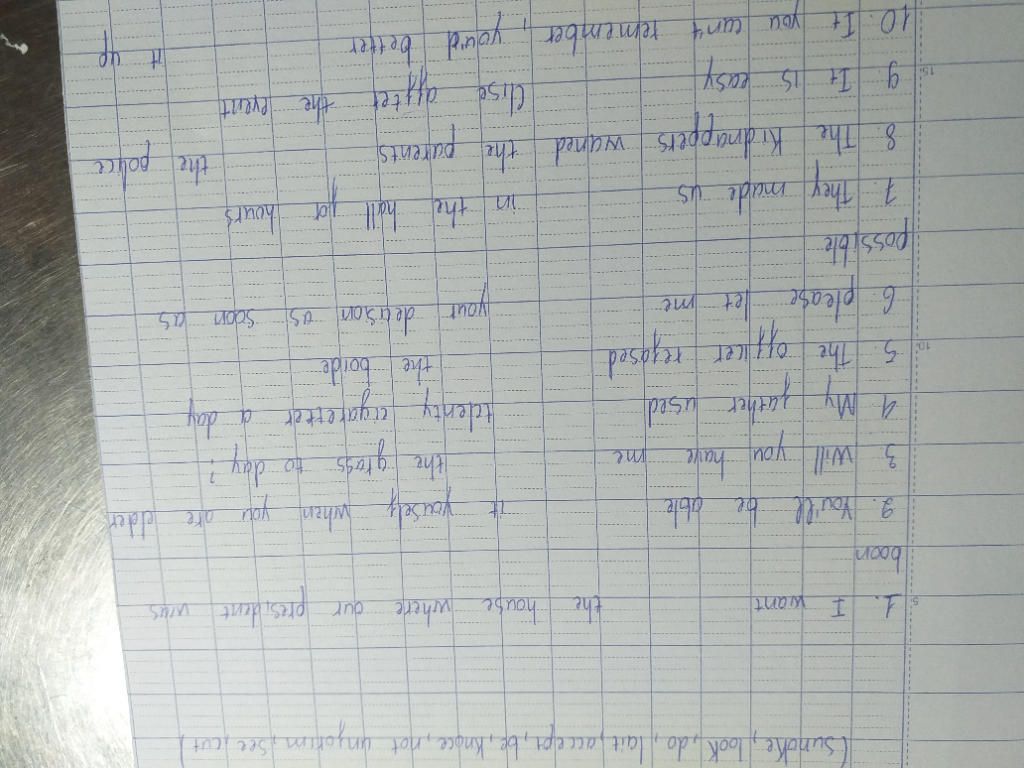 (Smoke, look, do, lait, accept, be, know, not unform, see, cut)
1. I want the house where our president was
boon
2. You'll be able it youself when you are elder
3. Will you have me the grass to day?
4 My father used tdenty cigaretter a day
5. The officer refosed the boide
6 please let me your decison as soon as
possible
7. They made us in the hall for hours
8. The Kidnappers waned the parents the police
9. It is easy Clise after the event
10. It you can't remember, you'd better it up